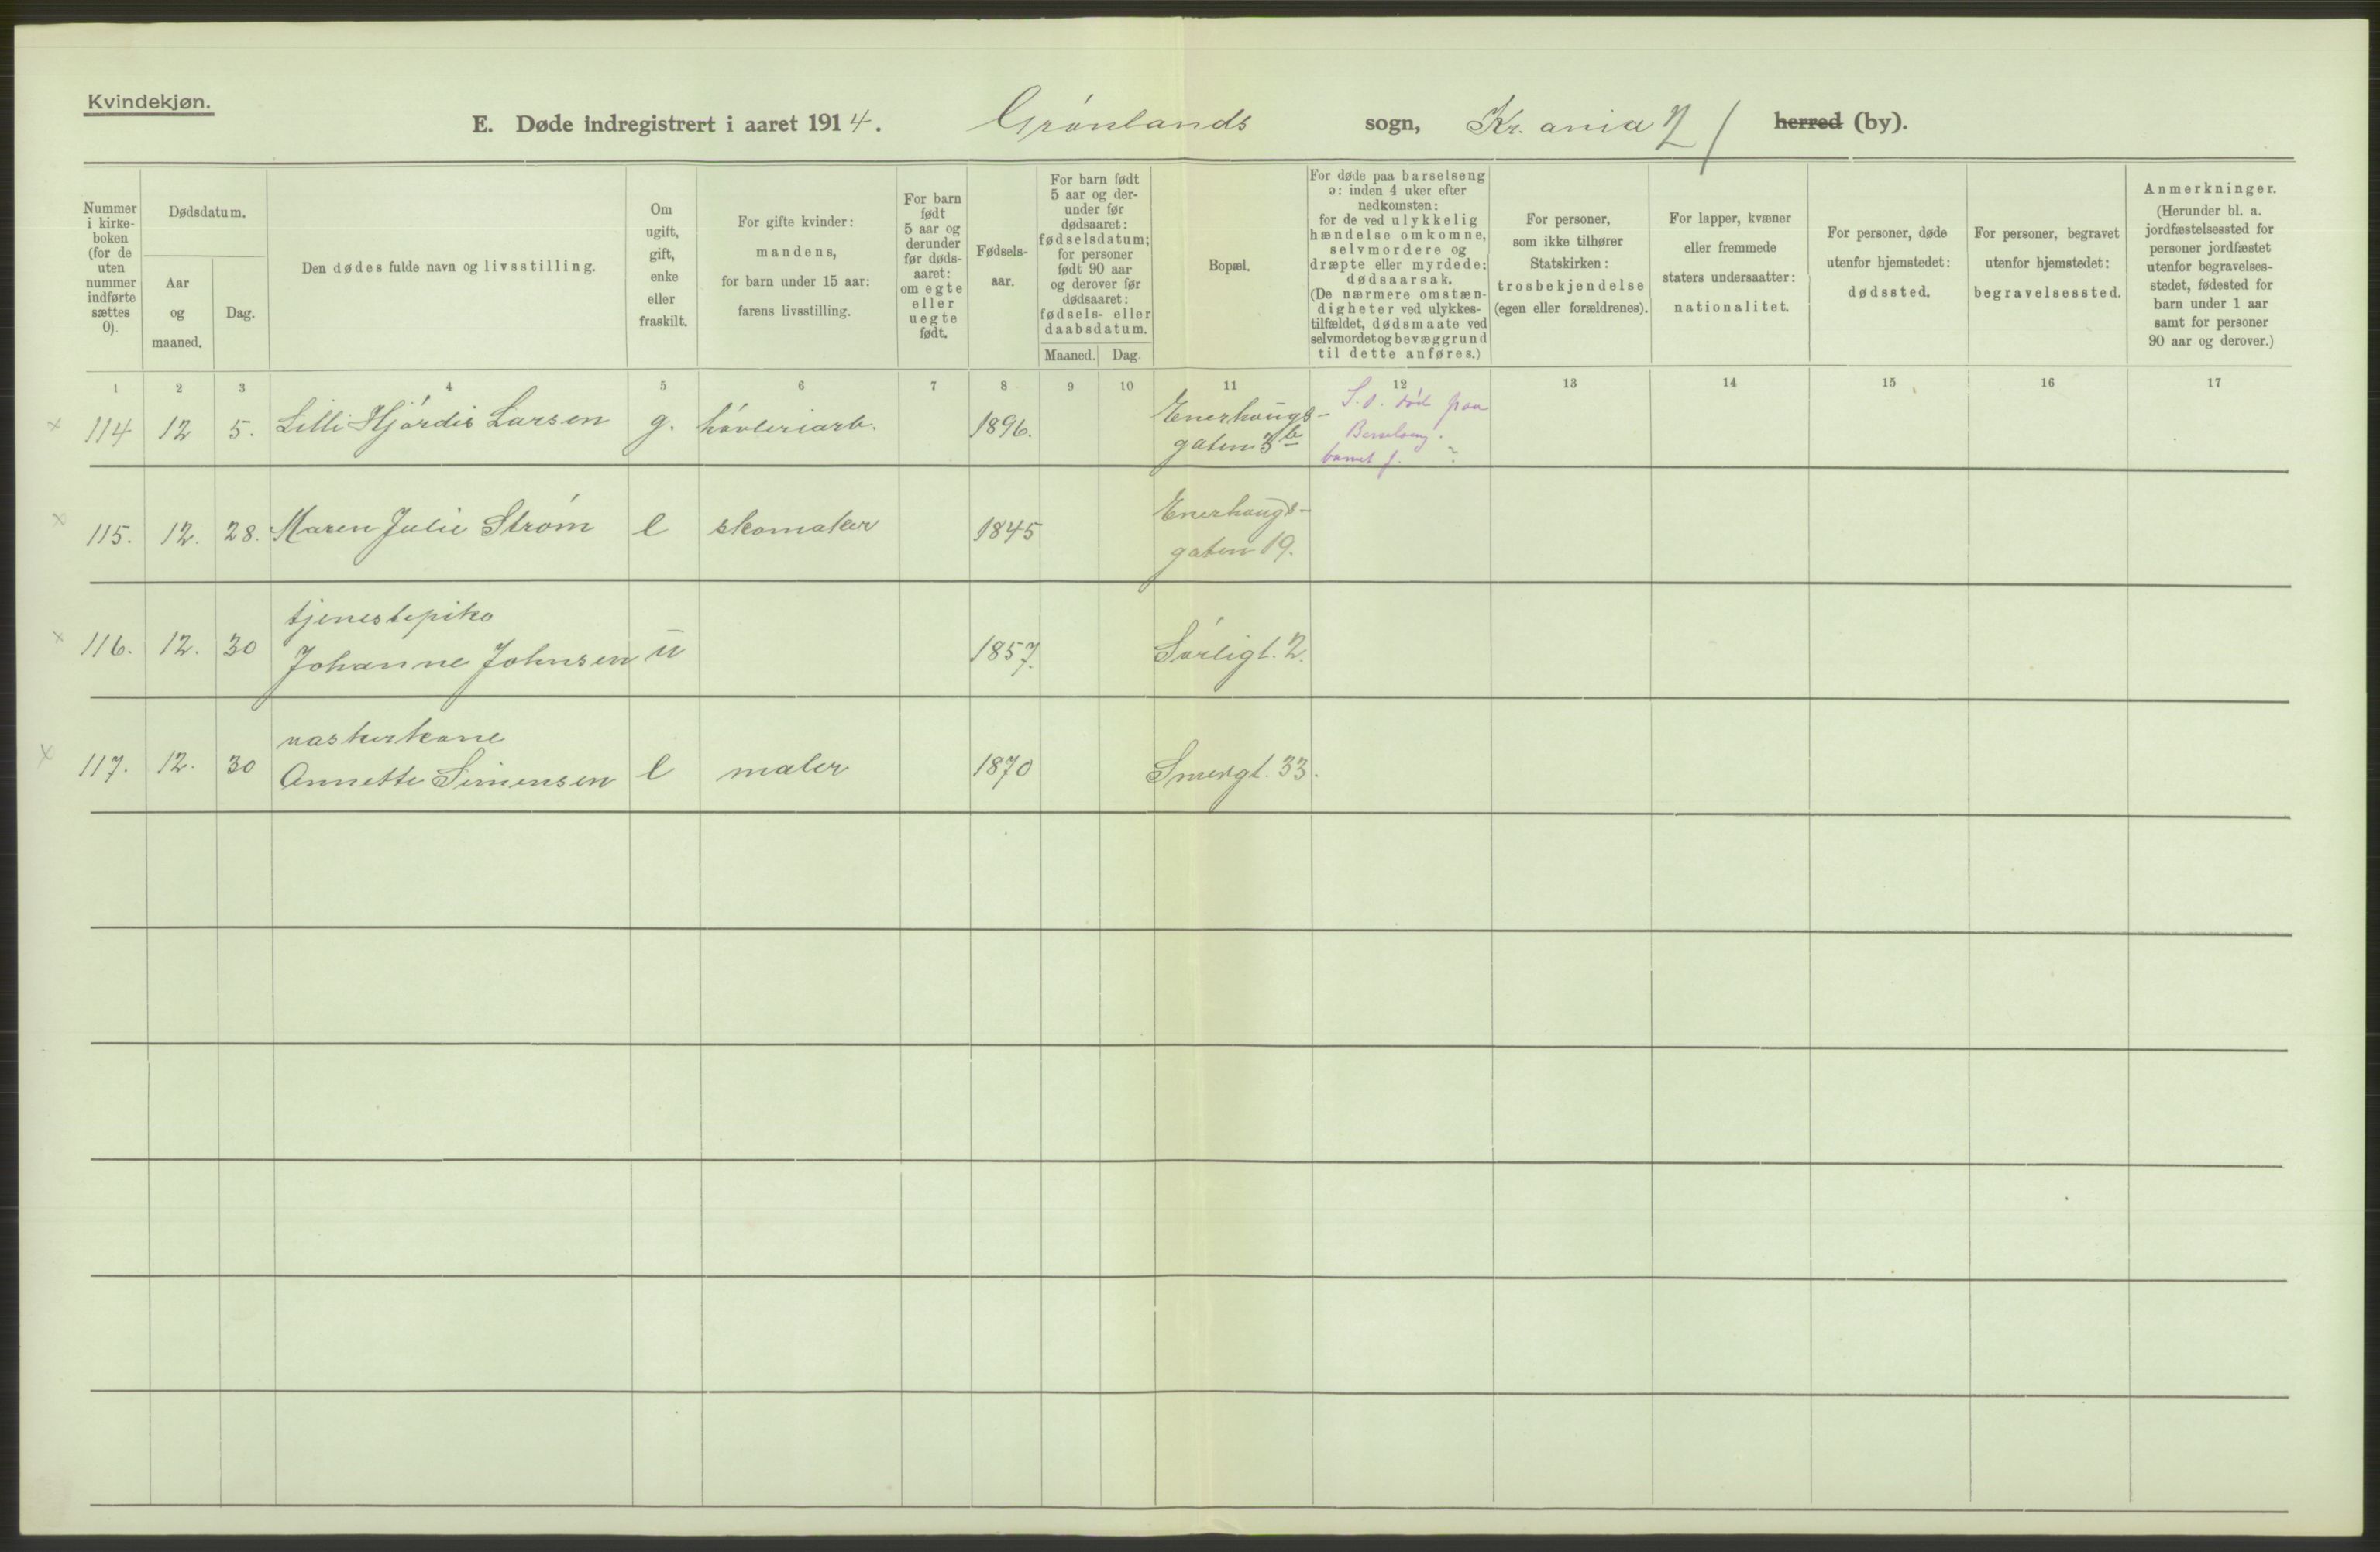 Kvindekjøn.
E. Døde indregistrert i aaret 1914. Grønlands sogn, Kr.ania herred (by).
Nummer i kirkeboken (for de uten nummer indførte sættes 0).
Dødsdatum.
Aar og maaned.
Dag.
Den dødes fulde navn og livsstilling.
Om ugift, gift, enke eller fraskilt.
For gifte kvinder: mandens, for barn under 15 aar: farens livsstilling.
For barn født 5 aar og derunder før dødsaaret: om egte eller uegte født.
Fødselsaar.
For barn født 5 aar og derunder før dødsaaret: fødselsdatum; for personer født 90 aar og derover før dødsaaret: fødsels- eller daabsdatum.
Maaned. Dag.
Bopæl.
For døde paa barselseng ɔ: inden 4 uker efter nedkomsten: for de ved ulykkelig hændelse omkomne, selvmordere og dræpte eller myrdede: dødsaarsak. (De nærmere omstændigheter ved ulykkestilfældet, dødsmaate ved selvmordet og bevæggrund til dette anføres.)
For personer, som ikke tilhører Statskirken: trosbekjendelse (egen eller forældrenes).
For lapper, kvæner eller fremmede staters undersaatter: nationalitet.
For personer, døde utenfor hjemstedet: dødssted.
For personer, begravet utenfor hjemstedet: begravelsessted.
Anmerkninger. (Herunder bl. a. jordfæstelsessted for personer jordfæstet utenfor begravelsesstedet, fødested for barn under 1 aar samt for personer 90 aar og derover.)
1 2 3 4 5 6 7 8 9 10 11 12 13 14 15 16 17
× 114 12 5. Lilli Hjördis Larsen g. høvleriarb. 1896. Enerhaugs-
gaten 3b
død paa
Barselseng.
barnet f. ?
× 115. 12. 28. Maren Julie Strøm e skomaker 1845 Enerhaugs-
gaten 19.
tjenestepike
× 116. 12. 30 Johanne Johnsen u 1857. Sørligt. 2.
vaskerkone
× 117. 12. 30 Annette Simensen e maler 1870 Smergt. 33.